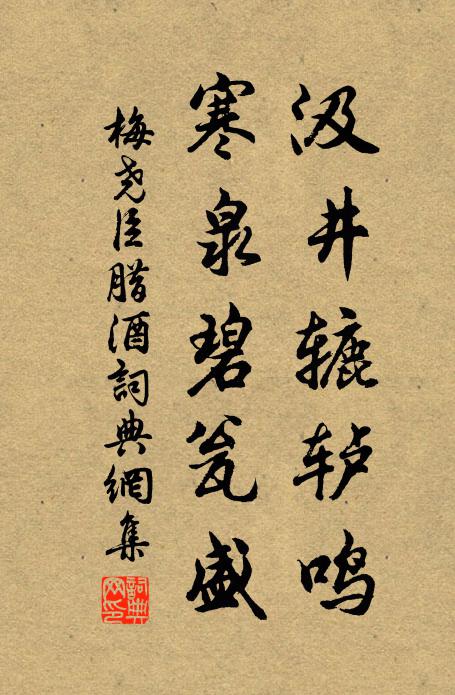 汲井辘轳鸣
寒泉碧瓮盛
梅尧臣腊酒詞典網集
詞典网印